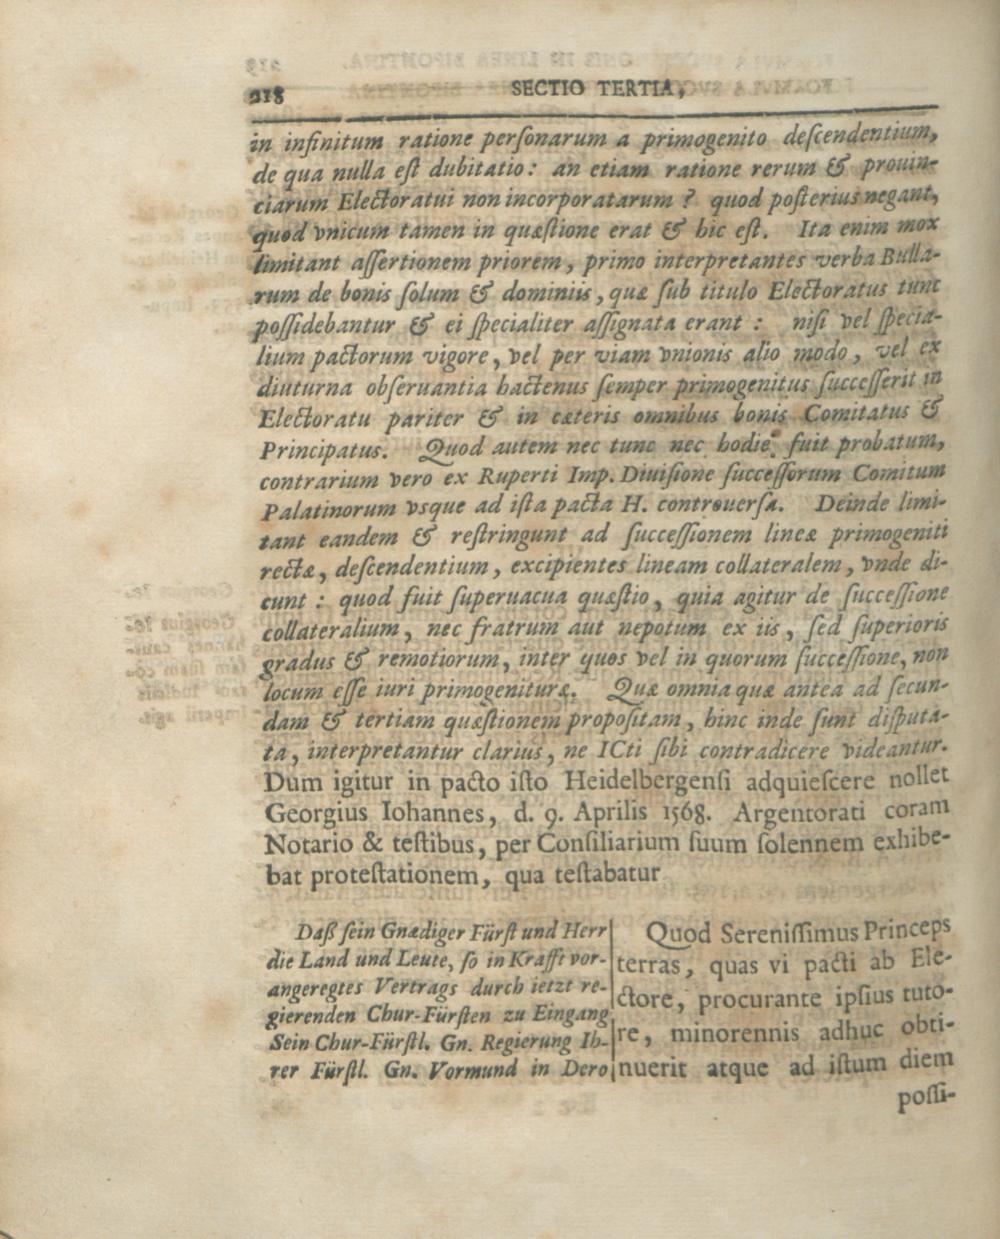 218 SECTIO TERTIA,
in infinitum ratione perſonarum a primogenito deſcendentium,
de qua nulla eſt dubitatio: an etiam ratione rerum & prouin-
ciarum Electoratui non incorporatarum? quod poſterius negant,
quod vnicum tamen in quæſtione erat & hic eſt. Ita enim mox
limitant aſſertionem priorem, primo interpretantes verba Bulla-
rum de bonis ſolum & dominiis, quæ ſub titulo Electoratus tunc
poſſidebantur & ei ſpecialiter aſſignata erant: niſi vel ſpecia-
lium pactorum vigore, vel per viam vnionis alio modo, vel ex
diuturna obſeruantia hactenus ſemper primogenitus ſucceſſerit in
Electoratu pariter & in cæteris omnibus bonis Comitatus &
Principatus. Quod autem nec tunc nec hodie fuit probatum,
contrarium vero ex Ruperti Imp. Diuiſione ſucceſſorum Comitum
Palatinorum vsque ad iſta pacta H. controuerſa. Deinde limi-
tant eandem & reſtringunt ad ſucceſſionem lineæ primogeniti
rectæ, deſcendentium, excipientes lineam collateralem, vnde di-
cunt: quod fuit ſuperuacua quæſtio, quia agitur de ſucceſſione
collateralium, nec fratrum aut nepotum ex iis, ſed ſuperioris
gradus & remotiorum, inter quos vel in quorum ſucceſſione, non
locum eſſe iuri primogenituræ. Quæ omnia quæ antea ad ſecun-
dam & tertiam quæſtionem propoſitam, hinc inde ſunt diſputa-
ta, interpretantur clarius, ne ICti ſibi contradicere videantur.
Dum igitur in pacto iſto Heidelbergenſi adquieſcere nollet
Georgius Iohannes, d. 9. Aprilis 1568. Argentorati coram
Notario & teſtibus, per Conſiliarium ſuum ſolennem exhibe-
bat proteſtationem, qua teſtabatur
Daß ſein Gnædiger Fürſt und Herr
die Land und Leute, ſo in Krafft vor-
angeregtes Vertrags durch ietzt re-
gierenden Chur-Fürſten zu Eingang
Sein Chur-Fürſtl. Gn. Regierung Ih-
rer Fürſtl. Gn. Vormund in Dero
Quod Sereniſſimus Princeps
terras, quas vi pacti ab Ele-
ctore, procurante ipſius tuto-
re, minorennis adhuc obti-
nuerit atque ad iſtum diem
poſſi-